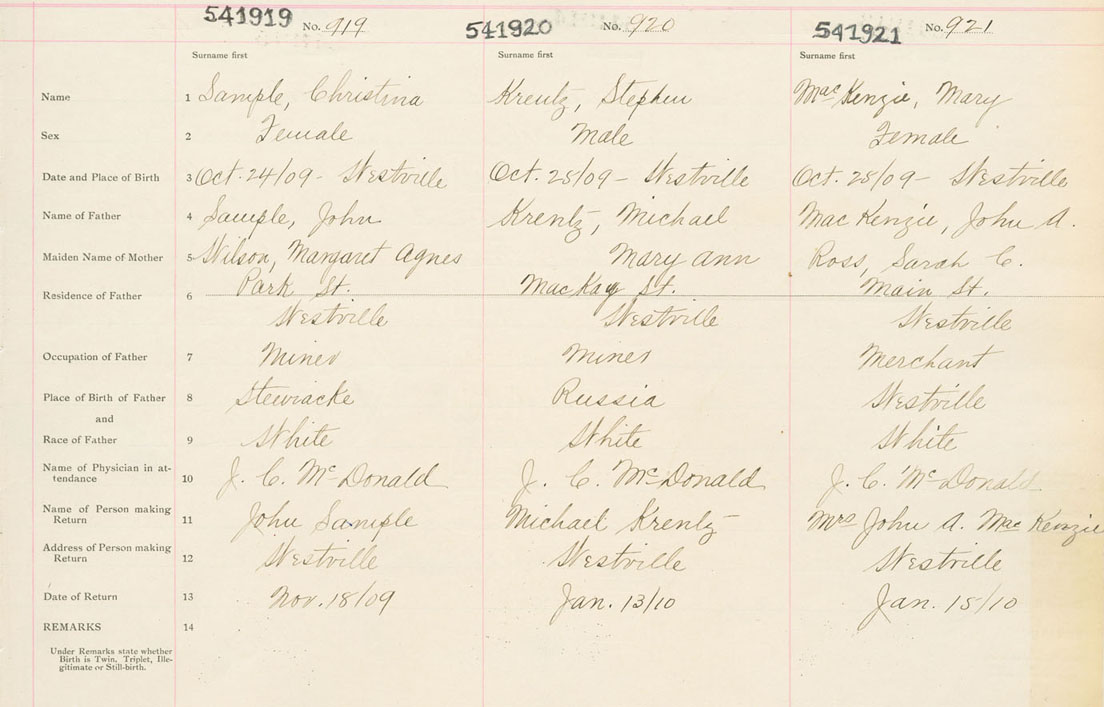 541919 No. 919 541920 No. 920 541921 No. 921
Surname first Surname first Surname first
Name 1 Sample, Christina Krentz, Stephen MacKenzie, Mary
Sex 2 Female Male Female
Date and Place of Birth 3 Oct. 24/09 - Westville Oct. 25/09 - Westville Oct. 28/09 - Westville
Name of Father 4 Sample, John Krentz, Michael MacKenzie, John A.
Maiden Name of Mother 5 Wilson, Margaret Agnes Mary Ann Ross, Sarah C.
Residence of Father 6 Park St. MacKay St. Main St.
Westville Westville Westville
Occupation of Father 7 Miner Miner Merchant
Place of Birth of Father 8 Stewiacke Russia Westville
and
Race of Father 9 White White White
Name of Physician in at-
tendance 10 J. C. McDonald J. C. McDonald J. C. McDonald
Name of Person making
Return 11 John Sample Michael Krentz Mrs John A. MacKenzie
Address of Person making
Return 12 Westville Westville Westville
Date of Return 13 Nov. 18/09 Jan. 13/10 Jan. 15/10
REMARKS 14
Under Remarks state whether
Birth is Twin, Triplet, Ille-
gitimate or Still-birth.